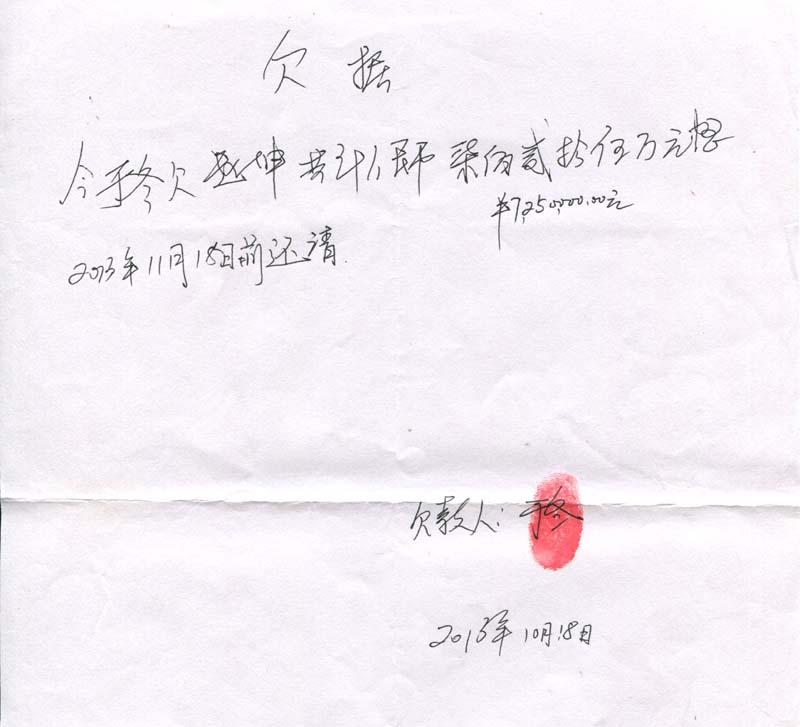 欠据
今于冬欠 赵坤 共计人民币 柒佰贰拾伍万元整
¥7,250,000.00元
2013年11月18日前还清.
欠款人:于冬
2013年10月18日